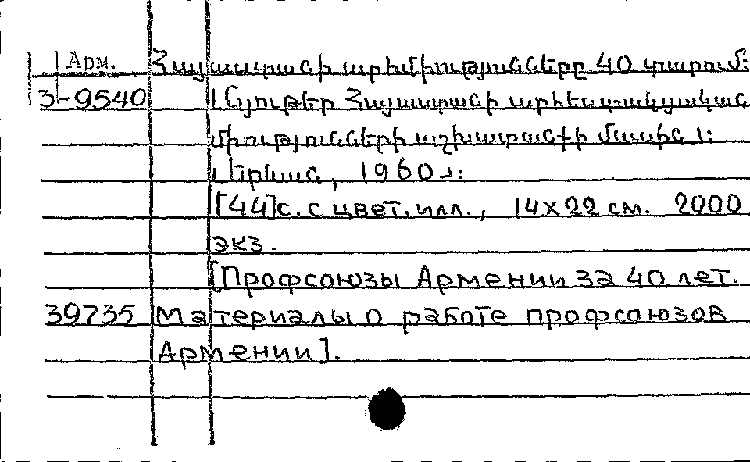 Арм. Հայաստանի արհմիությունները 40 տարում:
3-9540 Նյութեր Հայաստանի արհեստակցական
միությունների աշխատանքի մասին:
Երևան, 1960.
[44]с. с цвет. илл., 14x22 см. 2000
экз.
[Профсоюзы Армении за 40 лет.
39735 Материалы о работе профсоюзов
Армении].